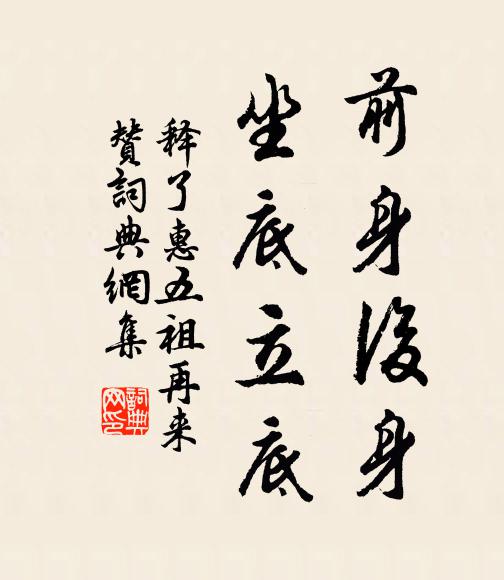 前身後身
坐底立底
释了惠五祖再来
赞詞典網集
詞典
网印